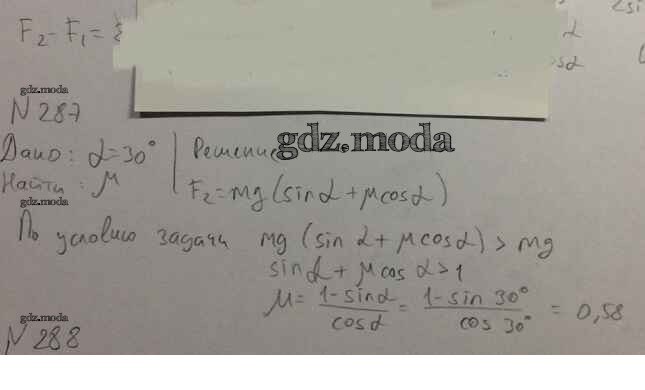 F₂ - F₁ =
gdz.moda
N 287
gdz.moda
Дано: α=30°
Решение
Найти: μ
F₂=mg(sinα+μcosα)
gdz.moda
По условию задачи mg (sin α+μcosα) > mg
sinα+μcosα>1
μ= 1-sinα / cosα = 1-sin 30° / cos 30° = 0,58
gdz.moda
N 288